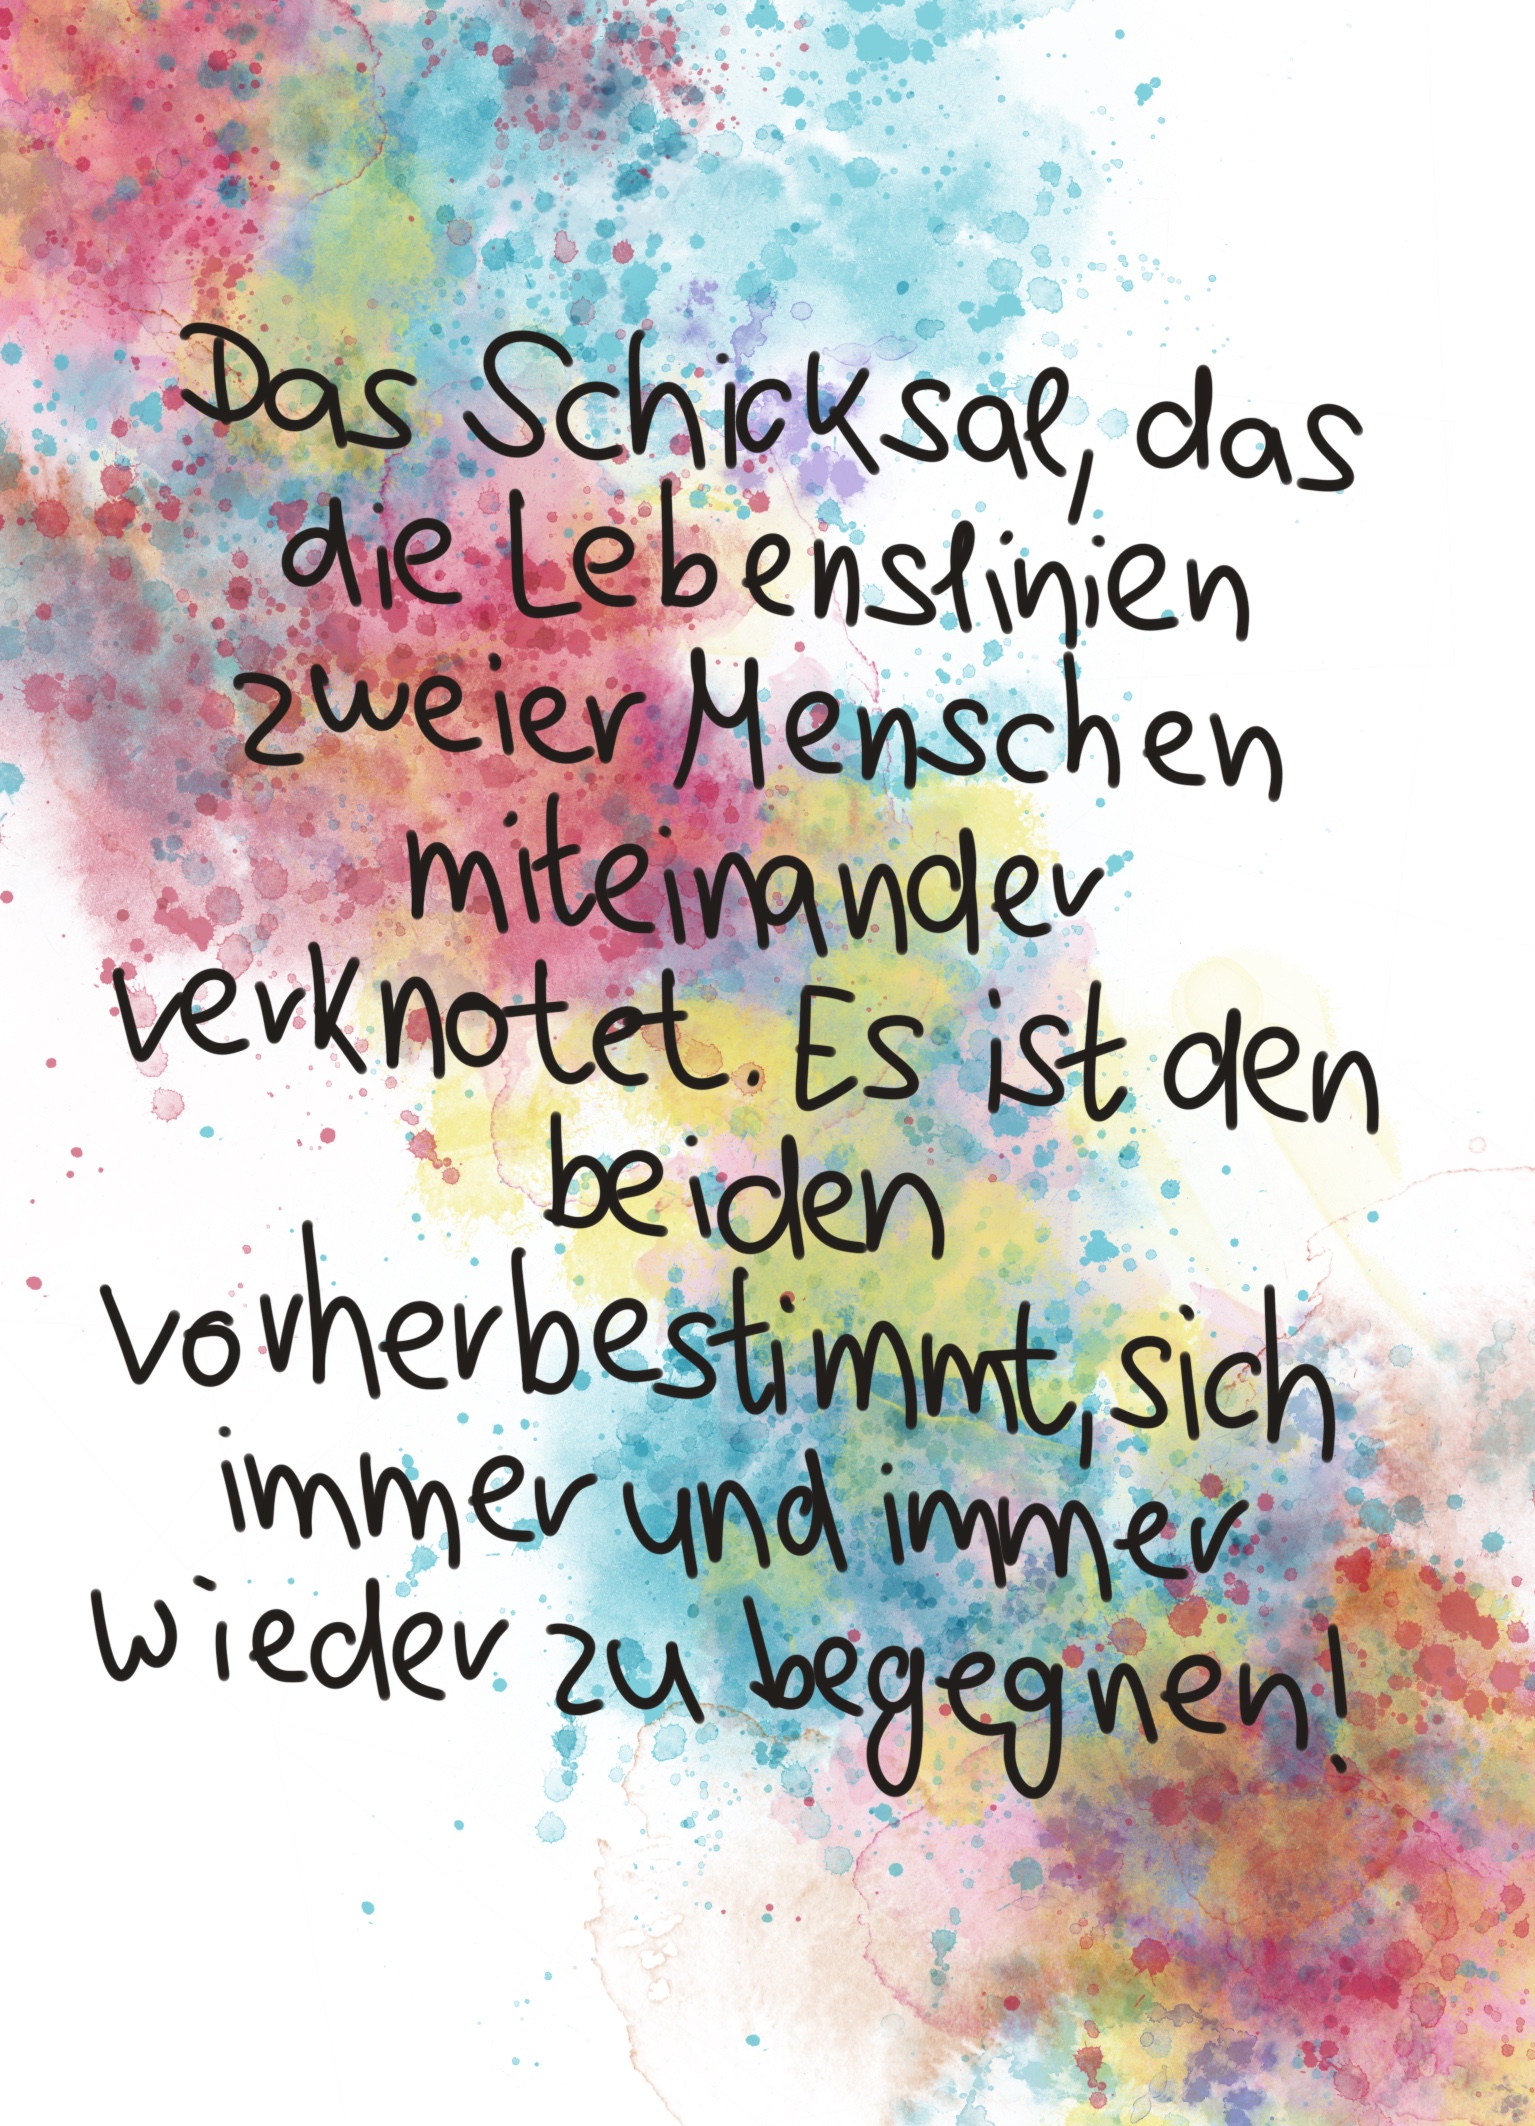 Das Schicksal, das
die Lebenslinien
zweier Menschen
miteinander
verknotet. Es ist den
beiden
vorherbestimmt, sich
immer und immer
wieder zu begegnen!